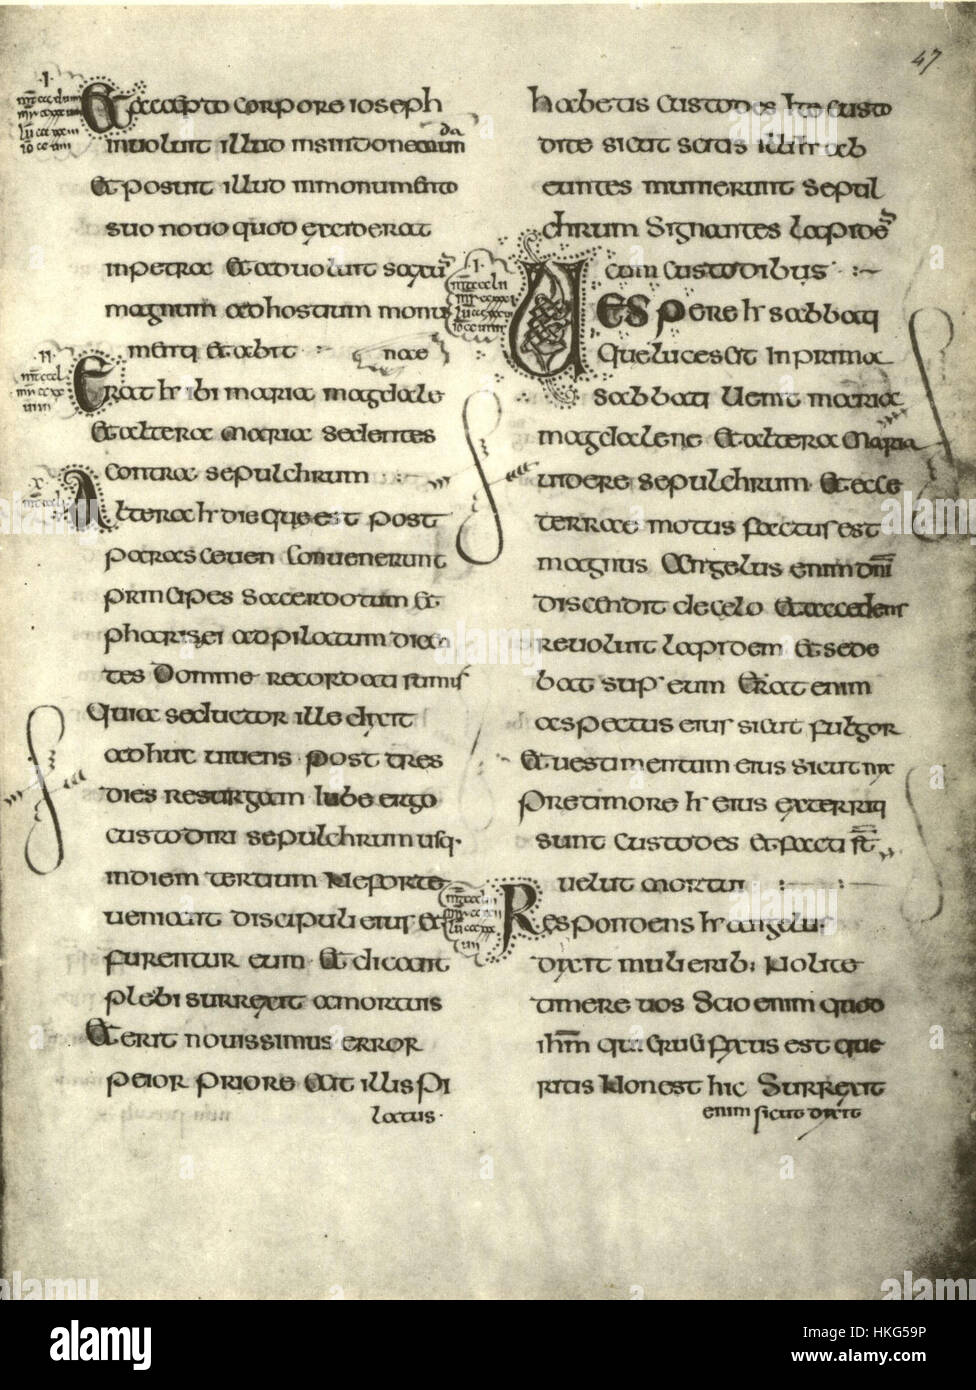 47
Et accepto corpore ioseph
inuoluit illud in sindone munda
et posuit illud in monumento
suo nouo quod exciderat
in petra et aduoluit saxū
magnum ad hostium monu
menti et abiit
nae
Erat hr ibi maria magdale
et altera maria sedentes
contra sepulchrum
Altera hr die que est post
parasceuen conuenerunt
principes sacerdotum et
pharisei ad pilatum dicen
tes domine recordati sumus
quia seductor ille dixit
adhuc uiuens post tres
dies resurgam iube ergo
custodiri sepulchrum usq·
in diem tertium ne forte
ueniant discipuli eius et
furentur eum et dicant
plebi surrexit a mortuis
et erit nouissimus error
peior priore ait illis pi
latus·
habetis custodes ite custo
dite sicut scitis illi hr ab
euntes munierunt sepul
chrum signantes lapidē
cum custodibus
Uespere hr sabbati
que lucescit in prima
sabbati uenit maria
magdalene et altera maria
uidere sepulchrum et ecce
terrae motus factus est
magnus angelus enim dn̄i
discendit de celo et accedens
reuoluit lapidem et sede
bat sup eum erat enim
aspectus eius sicut fulgor
et uestimentum eius sicut nix
pre timore hr eius exterriti
sunt custodes et facti s̄t
uelut mortui
Respondens hr angelus
dixit mulierib: nolite
timere uos scio enim quod
ih̄m qui cruci fixus est que
ritis non est hic surrexit
enim sicut dixit
alamy
Image ID: HKG59P
www.alamy.com